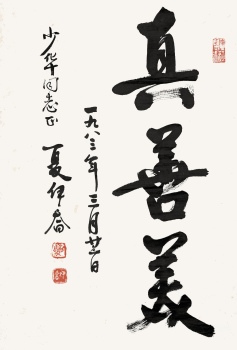 真善美
一九八三年三月廿二日
少华同志正
夏伊乔